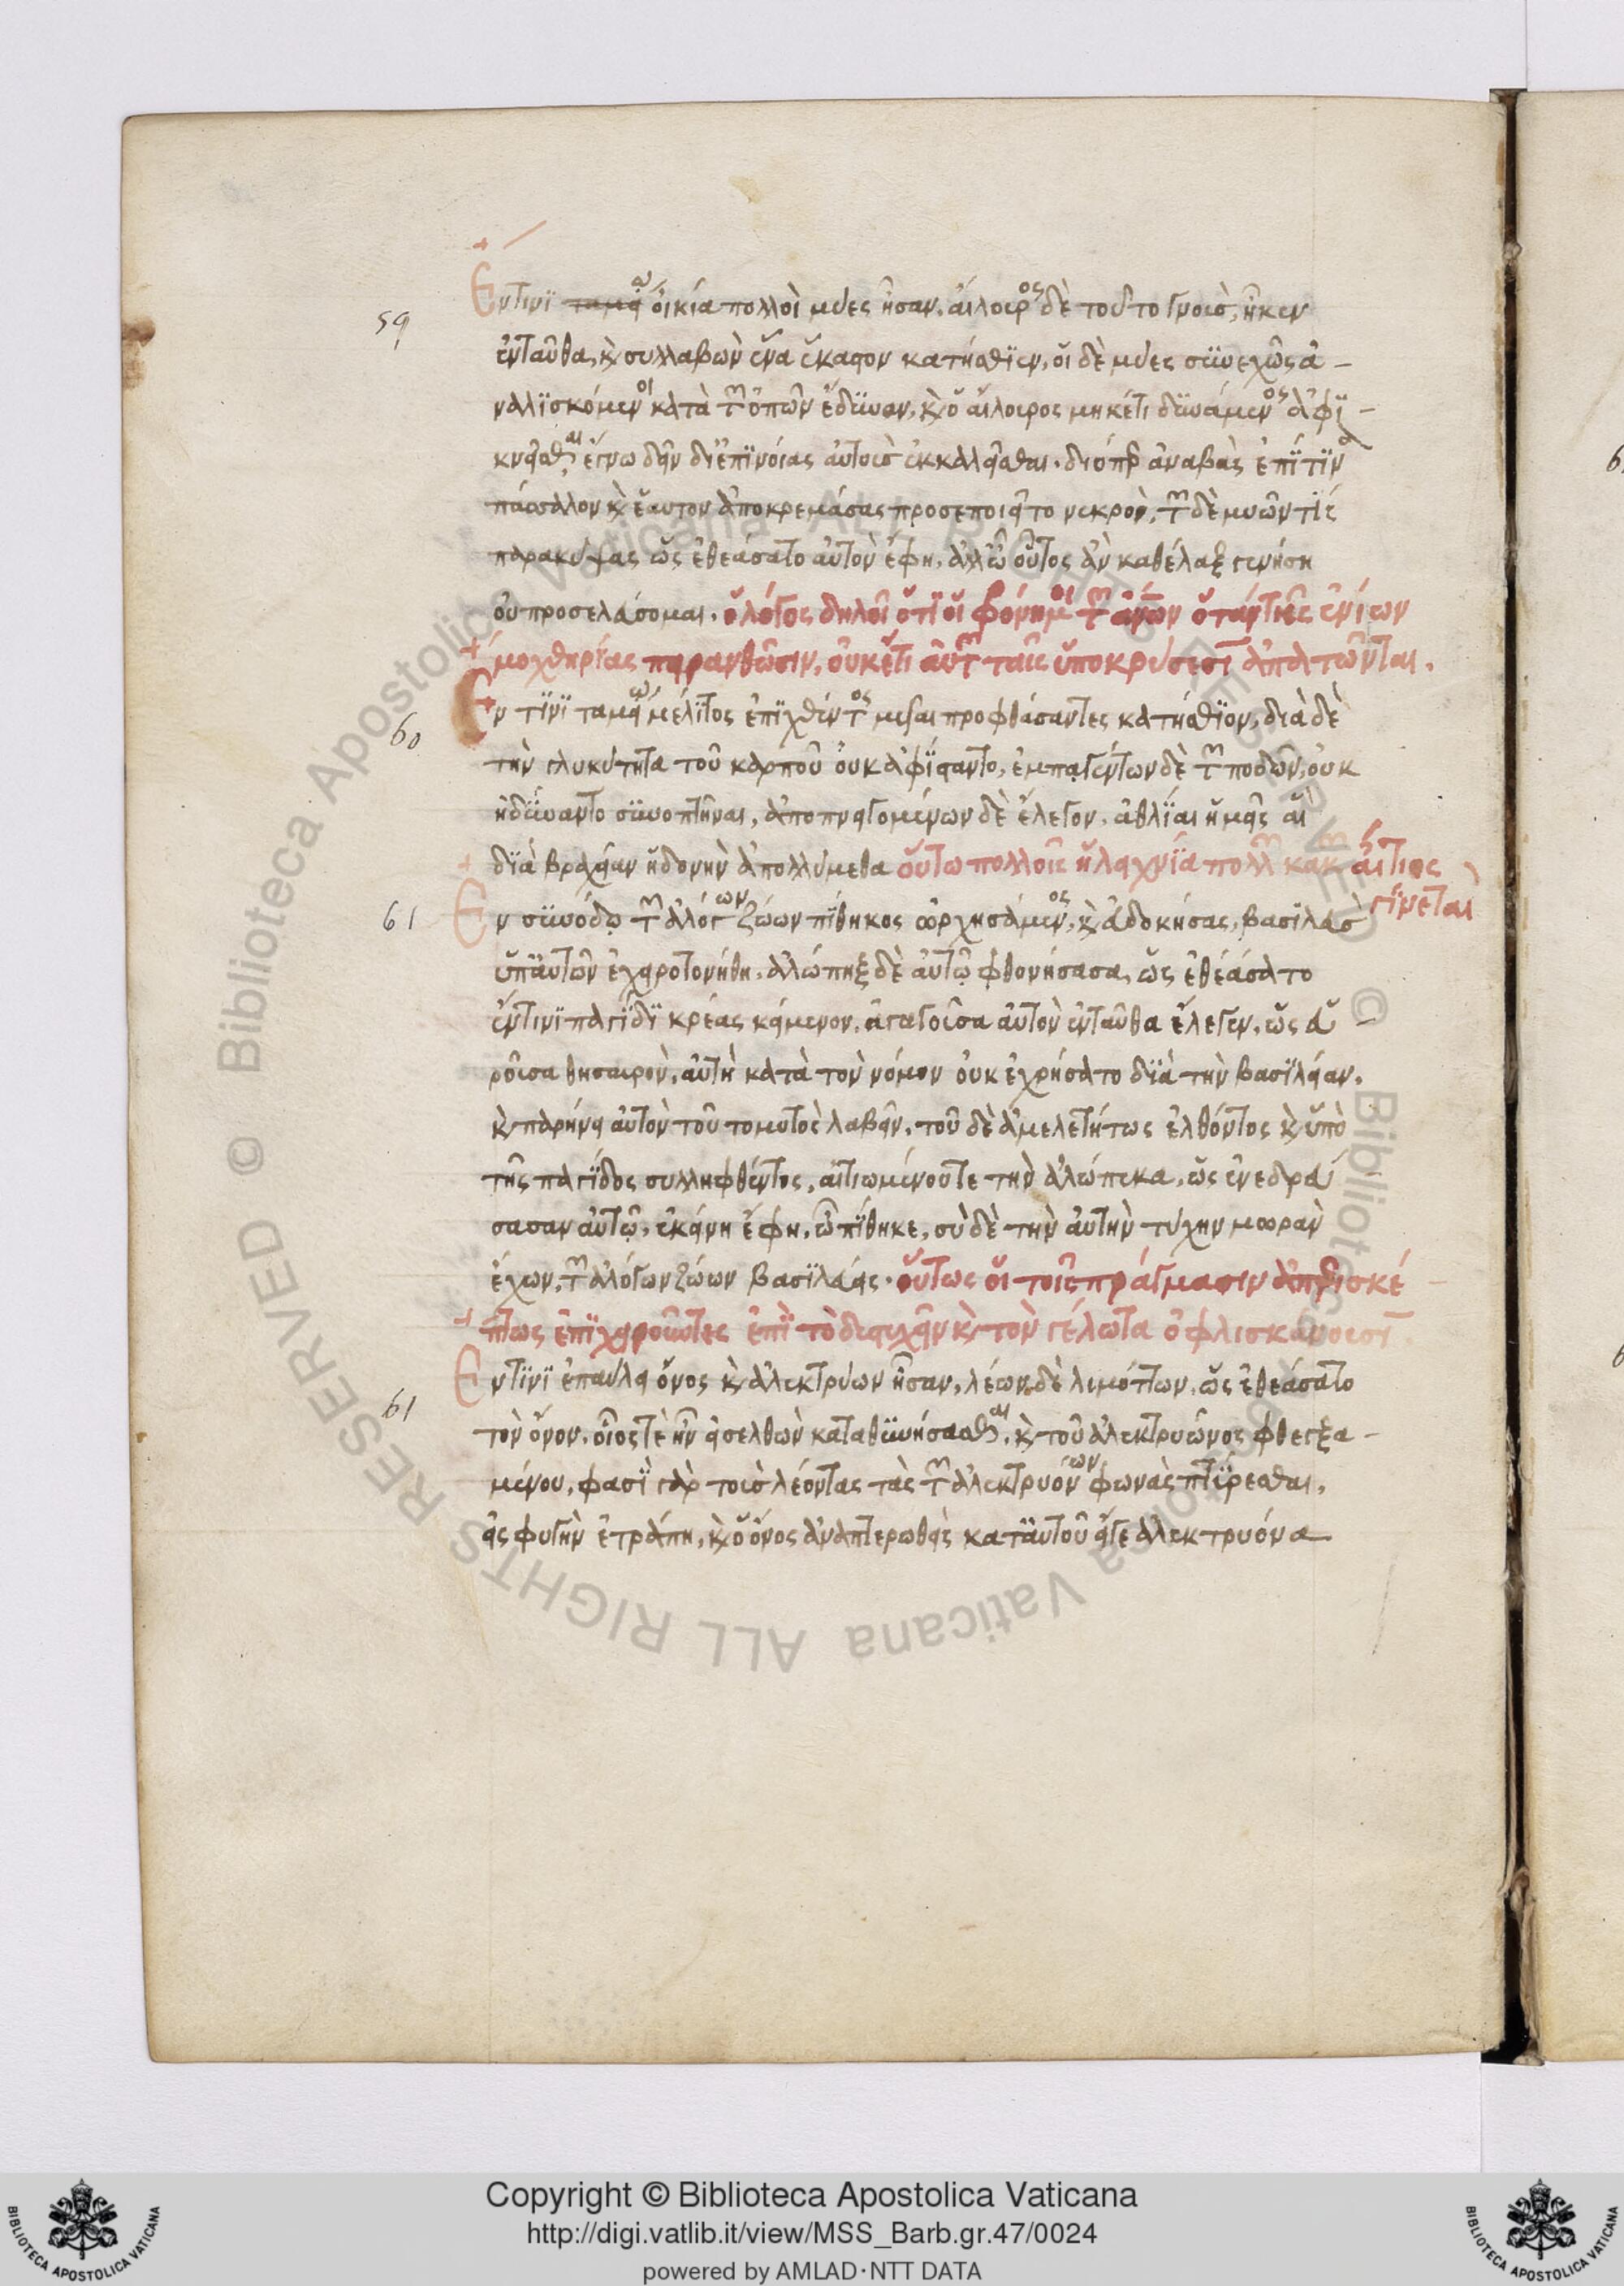 59
Ἐντινϊ ταμεῖω οἰκία πολλοὶ μύες ἦσαν, αἴλουρος δὲ τοῦτο γνοὺσ, ἧκεν
ἐνταῦθα, κ̀ συλλαβὼν ἕνα ἕκαστον κατήσθϊεν, οἱ δὲ μύες συνεχῶς ἀ-
ναλϊσκόμενοι κατὰ τῶν ὀπῶν ἔδυνον, κ̀ ὁ αἴλουρος μηκέτι δυνάμενος ἀφϊ-
κνεῖσθαι ἔγνω δεῖν δι'ἐπϊνοίας αὐτοὺσ ἐκκαλεῖσθαι. διόπερ ἀναβὰς ἐπϊ τϊνα
πάσσαλον κ̀ ἑαυτον ἀποκρεμάσας προσεποιεῖτο νεκρὸν, τῶν δὲ μυῶν τὶς
παρακύψας ὡς ἐθεάσατο αὐτὸν ἔφη, ἀλλ'ὦ οὗτος ἀν καθέλαξ γενήση
ου προσελεύσομαι. ὁ λόγος δηλοῖ ὅτϊ οἱ φρόνημοι τῶν ἀνων ὅταν τῆς ἐνίων
μοχθηρίας πειρανθῶσιν, οὐκέτι αὐτῶν ταῖς ὑποκρύσεσϊ ἀπατῶνται.
60
Ἐν τϊνϊ ταμείω μέλϊτος ἐπϊχθέντος μυῖαι προφθάσαντες κατήσθϊον, διὰ δὲ
τὴν γλυκύτητα τοῦ καρποῦ οὐκ ἀφϊσταντο, ἐμπαγέντων δὲ τῶν ποδῶν, οὐκ
ἠδύναντο συνοπτῆναι, ἀποπνιγομένων δὲ ἔλεγον, ἀθλϊαι ἡμεῖς αἳ
δϊὰ βραχεῖαν ἡδονὴν ἀπολλύμεθα οὕτω πολλοῖς ἡ λαχνϊα πολλῶν κακῶν αἴτιος
γίνεται
61
Ἐν συνόδω τῶν ἀλόγων ζώων πϊθηκος ὠρχησάμενος, κ̀ εὐδοκήσας, βασϊλεὺσ
ὑπ'αὐτῶν ἐχειροτονήθη. ἀλώπηξ δὲ αὐτῶ φθονήσασα, ὡς ἐθεάσατο
ἐν τινϊ παγϊδϊ κρέας κείμενον, ἀγαγοῦσα αὐτὸν ἐνταῦθα ἔλεγεν, ὡς εὑ-
ροῦσα θησαυρὸν, αὐτὴ κατὰ τὸν νόμον οὐκ ἐχρήσατο δϊὰ τὴν βασϊλείαν.
κ̀ παρήνει αὐτὸν τοῦτο μυτοὶς λαβεῖν. τοῦ δὲ ἀμελετήτως ἐλθόντος κ̀ ὑπὸ
τῆς παγϊδος συλληφθέντος, αἰτιωμένουτε τὴν ἀλώπεκα, ὡς ἐνεδρεύ
σασαν αὐτῶ, ἐκείνη ἔφη, ὦ πϊθηκε, σὺ δὲ τὴν αὐτὴν τύχην μωρὰν
ἔχων, τῶν ἀλόγων ζώων βασϊλεύεις. οὕτως οἱ τοῖς πράγμασιν ἀπερισκέ
πτως ἐπϊχειροῦντες ἐπϊ τὸ δυστυχεῖν κ̀ τὸν γέλωτα ὀφλισκάνουσϊ
61
Ἐντϊνϊ ἐπαύλει ὄνος κ̀ ἀλεκτρύων ἦσαν, λέων δὲ λιμόττων, ὡς ἐθεάσατο
τὸν ὄνον, οἷός τὲ ἦν εἰσελθὼν καταθυνήσασθαι, κ̀ τοῦ ἀλεκτρυῶνος φθεγξα-
μένου, φασϊ γὰρ τοὺσ λέοντας τὰς τῶν ἀλεκτρυόνων φωνὰς πτϊρεσθαι,
εἰς φυγὴν ἐτράπη, κ̀ ὁ ὄνος ἀναπτερωθεὶς κατ'αὐτοῦ εἴγε ἀλεκτρυόνα
Copyright © Biblioteca Apostolica Vaticana
http://digi.vatlib.it/view/MSS_Barb.gr.47/0024
powered by AMLAD·NTT DATA